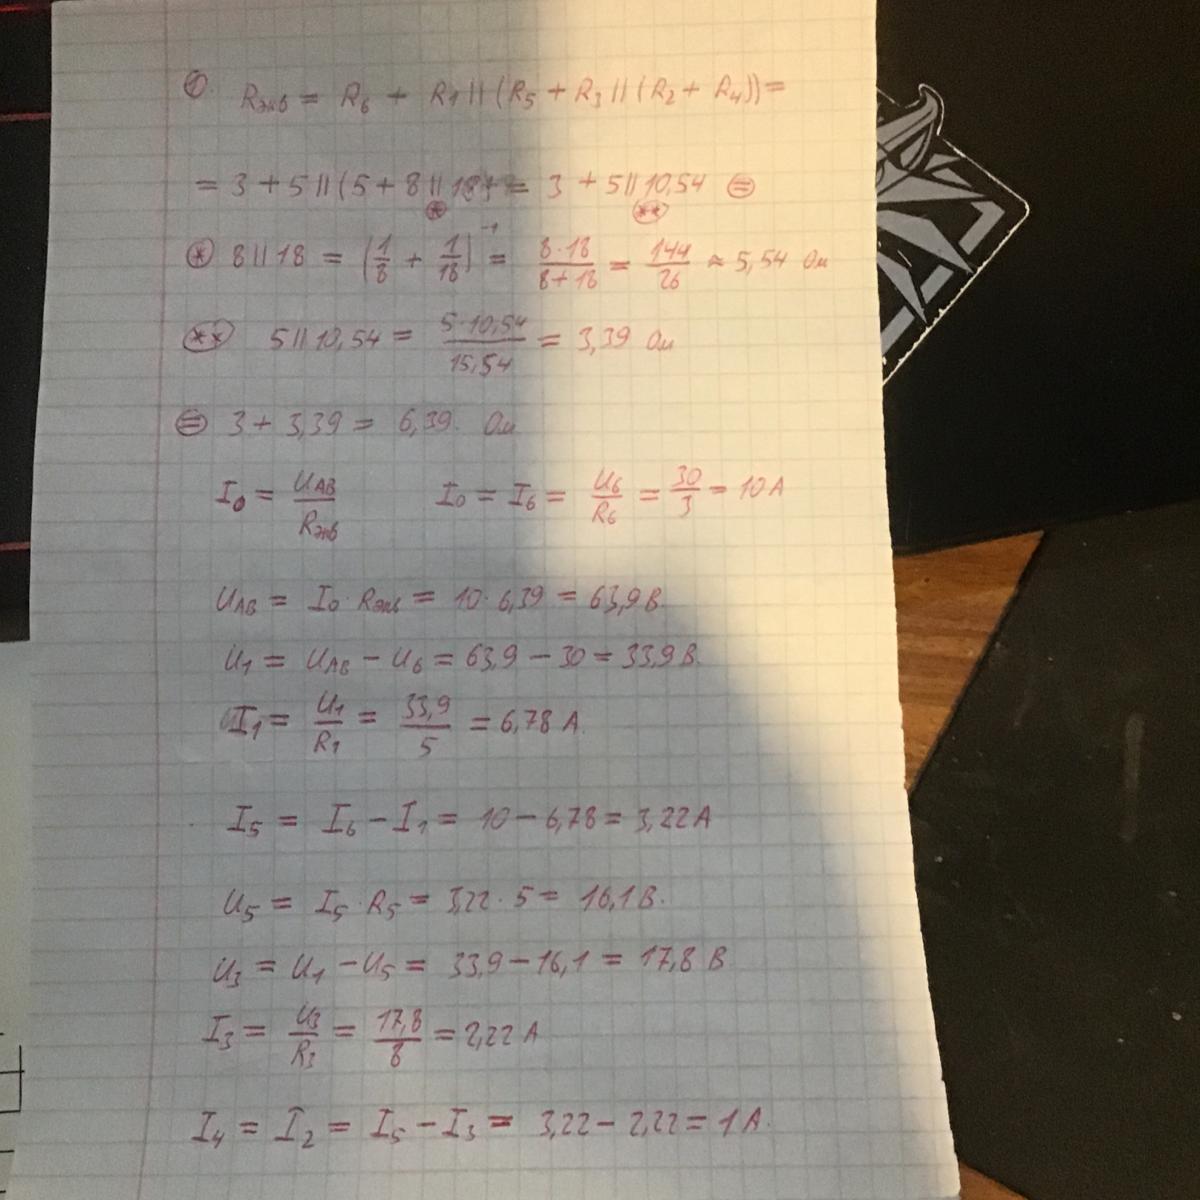 1. Rэкв = R6 + R1 || (R5 + R3 || (R2 + R4)) =
= 3 + 5 || (5 + 8 || 18) = 3 + 5 || 10,54 ⊜
* **
* 8 || 18 = (1/8 + 1/18)^-1 = 8·18/8+18 = 144/26 ≈ 5,54 Ом
** 5 || 10,54 = 5·10,54/15,54 = 3,39 Ом
⊜ 3 + 3,39 = 6,39. Ом
I0 = UAB/Rэкв I0 = I6 = U6/R6 = 30/3 = 10 А
UAB = I0 · Rэкв = 10 · 6,39 = 63,9 В.
U1 = UAB - U6 = 63,9 - 30 = 33,9 В.
I1 = U1/R1 = 33,9/5 = 6,78 А.
I5 = I6 - I1 = 10 - 6,78 = 3,22 А
U5 = I5 · R5 = 3,22 · 5 = 16,1 В.
U3 = U1 - U5 = 33,9 - 16,1 = 17,8 В
I3 = U3/R3 = 17,8/8 = 2,22 А
I4 = I2 = I5 - I3 = 3,22 - 2,22 = 1 А.